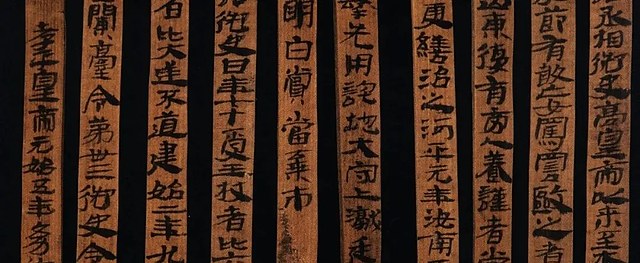 丞相御史高皇帝以來至本
節有敢妄罵詈毆之者
山東復有旁人養謹者常
更繕治之河平元年汝南
擊先用詫地太守上讞廷
明白賞當棄市
詔御史曰年七十受王杖者比六
者比大逆不道建始二年九
蘭臺令第卅三御史令
孝平皇帝元始五年幼伯